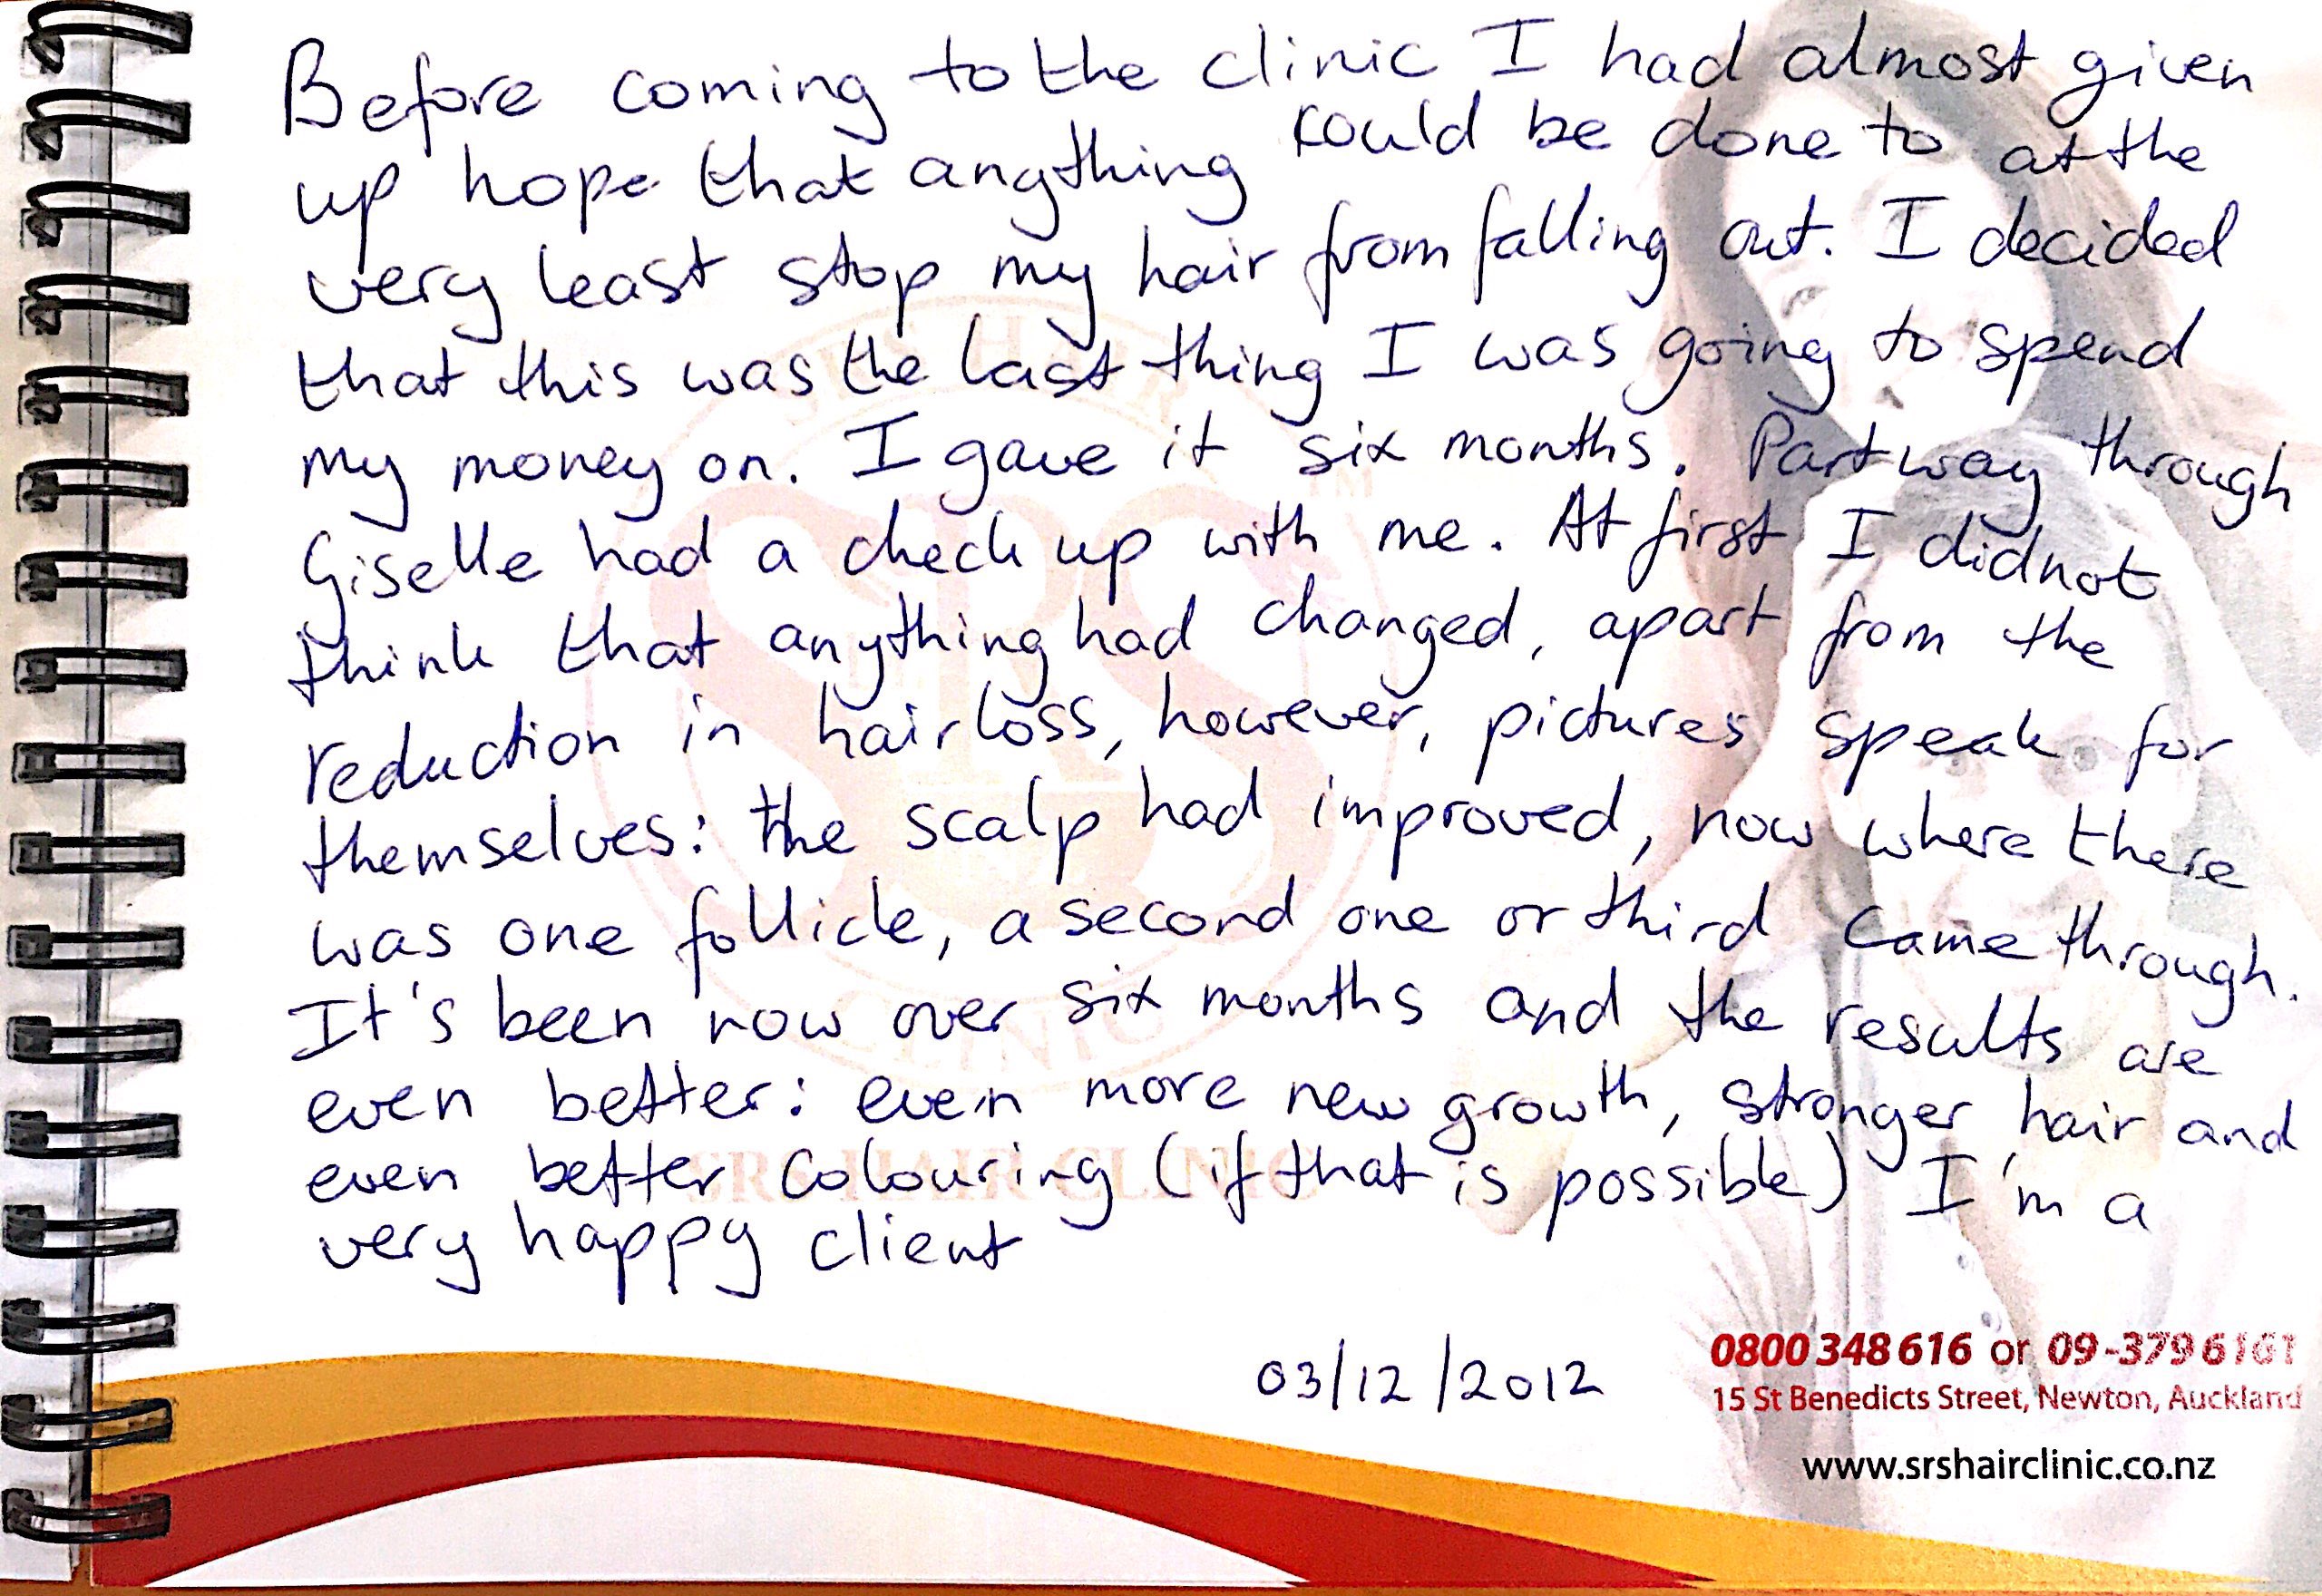 Before coming to the clinic I had almost given
up hope that anything could be done to at the
very least stop my hair from falling out. I decided
that this was the last thing I was going to spend
my money on. I gave it six months. Part way through
Giselle had a check up with me. At first I did not
think that anything had changed, apart from the
reduction in hair loss, however, pictures speak for
themselves: the scalp had improved, now where there
was one follicle, a second one or third came through.
It's been now over six months and the results are
even better: even more new growth, stronger hair and
even better colouring (if that is possible) I'm a
very happy client
03/12/2012
SRS HAIR CLINIC
SRS
TM
SRS HAIR CLINIC
0800 348 616 or 09-379 6161
15 St Benedicts Street, Newton, Auckland
www.srshairclinic.co.nz